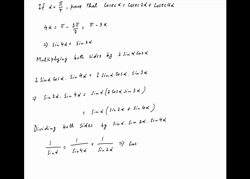 If α = π/7, prove that Cosec α = Cosec 2α + Cosec 4α
4α = π - 3π/7 = π - 3α
⇒ Sin 4α = Sin 3α
Multiplying both sides by 2 Sin α Cos α
2 Sin α Cos α. Sin 4α = 2 Sin α Cos α. Sin 3α
⇒ Sin 2α. Sin 4α = Sin α (2 Cos α Sin 3α)
= Sin α (Sin 2α + Sin 4α)
Dividing both sides by Sin α. Sin 2α. Sin 4α
1/Sin α = 1/Sin 4α + 1/Sin 2α ⇒ Cos